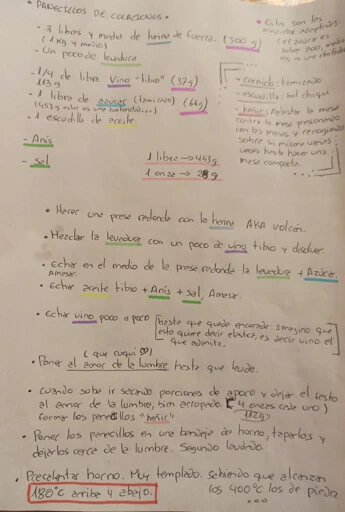 • PANECILLOS DE COLACIONES •
- 3 libras y media de harina de fuerza. (500 g)
(1 kg y medio)
- Un poco de levadura
- 1/4 de libra vino "tibio" (37g)
113 g
- 1 libra de azúcar (tamizado) (66g)
(453 g esto es una
- 1 escudilla de aceite.
- Anís
- Sal
1 libra → 453g
1 onza → 28g
• Estas son las
medidas adaptadas
(el azúcar es
sobre 200,
es una
- cernido: tamizado
- escudilla: bol chiquí
- heñir: Aplastar la masa
contra la mesa presionando
con las manos y recogiendo
sobre sí misma varias
veces hasta hacer una
masa compacta.
• Hacer una presa redonda con la harina AKA volcán.
• Mezclar la levadura con un poco de vino tibio y disolver.
• Echar en el medio de la presa redonda la levadura + Azúcar.
Amasar.
• Echar aceite tibio + Anís + sal, Amasar.
• Echar vino poco a poco [hasta que quede encerada: imagino que
esto quiere decir elástica, es decir vino el
que admita.
(que cuqui ♡)
• Poner al amor de la lumbre hasta que leude.
• Cuando suba ir sacando porciones de a poco y dejar el resto
al amor de la lumbre, bien arropado. (4 onzas cada uno)
112g
Formar los panecillos "heñir"
• Poner los panecillos en una bandeja de horno, taparlos y
dejarlos cerca de la lumbre. Segundo leudado.
• Precalentar horno. Muy templado. Sabiendo que alcanzan
los 400°C los de piedra
180°C arriba y abajo.
...